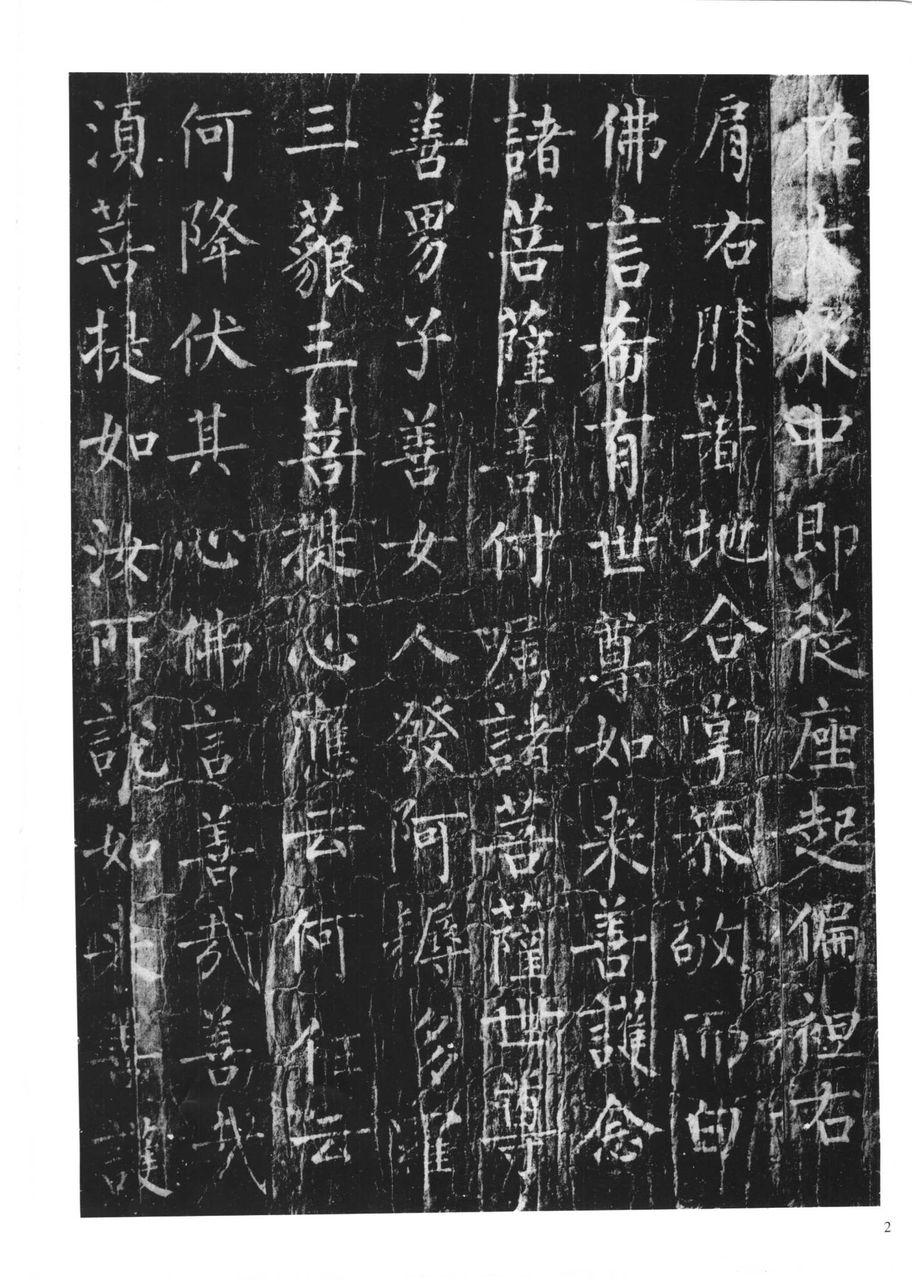 在大衆中即從座起偏袒右
肩右膝著地合掌恭敬而白
佛言希有世尊如来善護念
諸菩薩善付嘱諸菩薩世尊
善男子善女人發阿耨多羅
三藐三菩提心應云何住云
何降伏其心佛言善哉善哉
湏菩提如汝所說如来善護
2